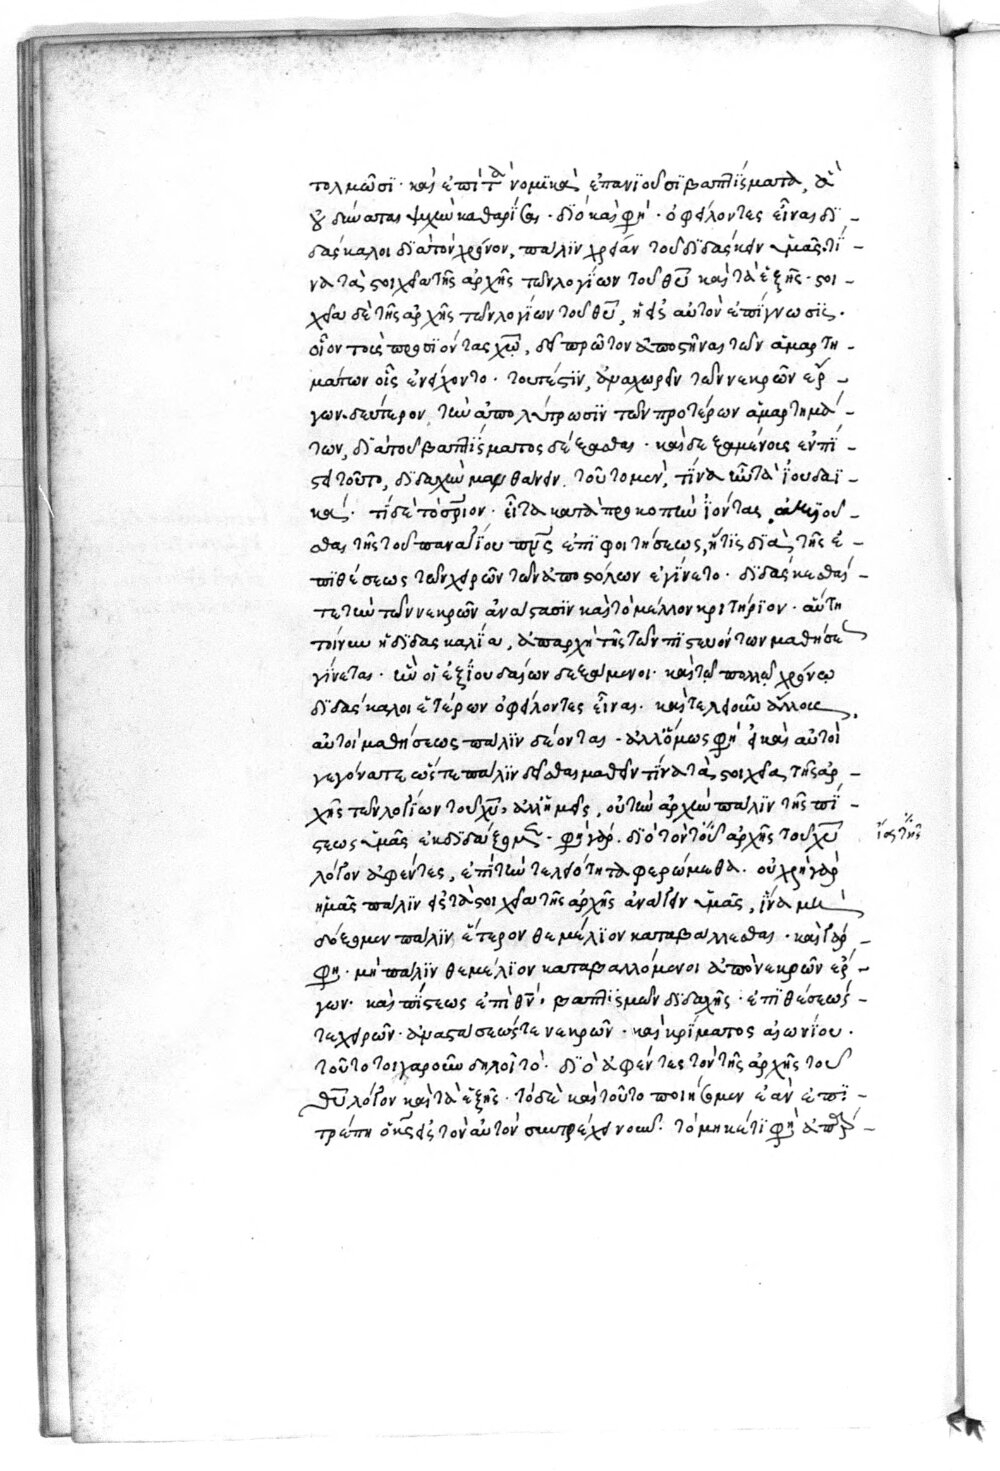 τολμῶσι· καὶ ἐπὶ τὰ νομικὰ ἐπανιοῦσι βαπτίσματα, ἃ
οὐ δύναται ψυχὴν καθαρίσαι· διὸ καὶ φησί· ὀφείλοντες εἶναι δι-
δάσκαλοι διὰ τὸν χρόνον, πάλιν χρείαν τοῦ διδάσκειν ὑμᾶς τί-
να τὰ στοιχεῖα τῆς ἀρχῆς τῶν λογίων τοῦ θυ καὶ τὰ ἑξῆς· στοι-
χεῖα δὲ τῆς ἀρχῆς τῶν λογίων τοῦ θυ, ἡ εἰς αὐτὸν ἐπίγνωσις·
οἷον τοὺς προσιόντας χω, δεῖ πρῶτον ἀποστῆναι τῶν ἁμαρτη-
μάτων οἷς ἐνείχοντο· τουτέστιν, ἀναχωρεῖν τῶν νεκρῶν ἔρ-
γων· δεύτερον, τὴν ἀπολύτρωσιν τῶν προτέρων ἁμαρτημά-
των, διὰ τοῦ βαπτίσματος δέξασθαι· καὶ δεξαμένοις ἐν πί-
στει τοῦτο, διδαχὴν μανθάνειν. τοῦτο μὲν, τίνα ἦν τὰ ἰουδαϊ-
κά· τί δὲ τὸ σριον· εἶτα κατὰ προκοπὴν ἰόντας, ἀξιοῦ-
σθαι τῆς τοῦ παναγίου πνς ἐπιφοιτήσεως, ἥτις διὰ τῆς ἐ-
πιθέσεως τῶν χειρῶν τῶν ἀποστόλων ἐγίνετο· διδάσκεσθαί
τε τὴν τῶν νεκρῶν ἀνάστασιν καὶ τὸ μέλλον κριτήριον· αὕτη
τοίνυν ἡ διδασκαλία, ἀπαρχὴ τῆς τῶν πιστευόντων μαθήσεως
γίνεται· ἣν οἱ ἐξ ἰουδαίων δεξάμενοι· καὶ τῷ πολλῷ χρόνῳ
διδάσκαλοι ἑτέρων ὀφείλοντες εἶναι· καὶ τελειοῦν ἄλλους,
αὐτοὶ μαθήσεως πάλιν δέονται· ἀλλ' ὅμως φησὶ εἰ καὶ αὐτοὶ
γεγόνατε ὥστε πάλιν δεῖσθαι μαθεῖν τίνα τὰ στοιχεῖα τῆς ἀρ-
χῆς τῶν λογίων τοῦ χυ, ἀλλ' ἡμεῖς, οὐ τὴν ἀρχὴν πάλιν τῆς πί-
στεως ὑμᾶς ἐκδιδάξομεν· φησὶ γάρ· διὸ τὸν τῆς ἀρχῆς τοῦ χυ
λόγον ἀφέντες, ἐπὶ τὴν τελειότητα φερώμεθα· οὐ χρὴ γὰρ
ἡμᾶς πάλιν εἰς τὰ στοιχεῖα τῆς ἀρχῆς ἀνάγειν ὑμᾶς, ἵνα μὴ
δόξωμεν πάλιν ἕτερον θεμέλιον καταβάλλεσθαι· καὶ γάρ
φησι· μὴ πάλιν θεμέλιον καταβαλλόμενοι ἀπὸ νεκρῶν ἔρ-
γων· καὶ πίστεως ἐπὶ θν· βαπτισμῶν διδαχῆς· ἐπιθέσεώς
τε χειρῶν· ἀναστάσεώς τε νεκρῶν· καὶ κρίματος αἰωνίου·
τοῦτο τοιγαροῦν δηλοῖ τό· διὸ ἀφέντες τὸν τῆς ἀρχῆς τοῦ
θυ λόγον καὶ τὰ ἑξῆς· τὸ δὲ καὶ τοῦτο ποιήσομεν ἐὰν ἐπι-
τρέπῃ ὁ κς εἰς τὸν αὐτὸν συντρέχει νοῦν· τὸ μηκέτι φησὶ